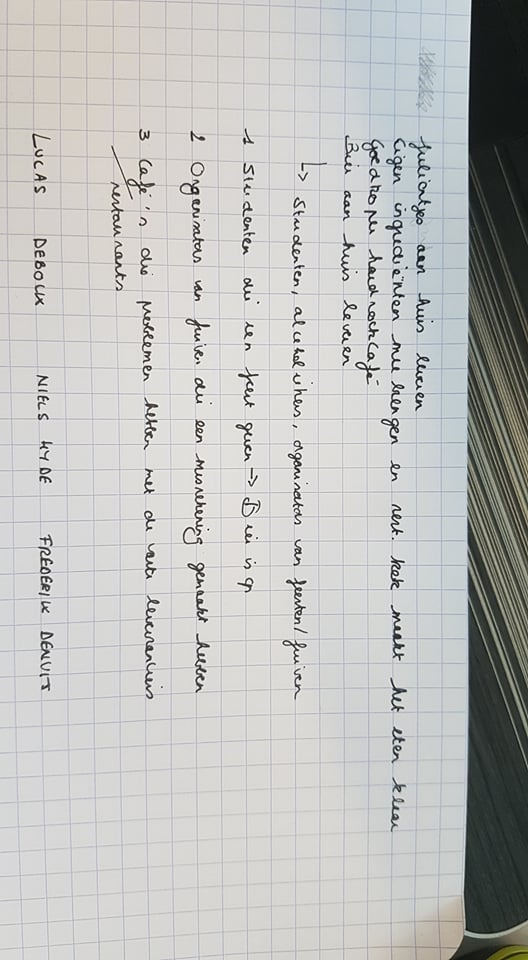 julientjes aan huis leveren
Eigen ingrediënten mee brengen en rest. kok maakt het eten klaar
Goedkoper hardrockcafé
Bier aan huis leveren
↳ Studenten, alcoholikers, organisators van feesten/fuiven
1 Studenten die een feest geven → Bier is op
2 Organisators van fuiven die een misrekening gemaakt hebben
3 Café's die problemen hebben met de vaste leveranciers
restaurants
LUCAS DEBOUX NIELS HYDE FREDERIK DENUIT